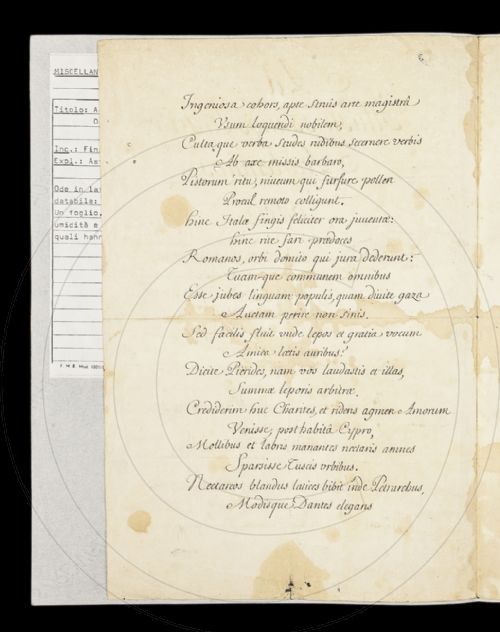 MISCELLAN
Titolo: A
O
Inc.: Fin
Expl.: As
Ode in la
databile:
Un foglio,
umidità e
quali hann
Ingeniosa cohors, apte sinuis arte magistrâ
Usum loquendi nobilem,
Culta que verba studes rudibus secernere verbis
Ab axe missis barbaro,
Pistorum ritu, niueum qui furfure pollen
Procul remoto colligunt.
Hinc Italæ fingis feliciter ora juventæ:
hinc rite fari prædoces
Romanos, orbi domito qui jura dederunt:
Tuam que communem omnibus
Esse jubes linguam populis, quam diuite gaza
Auctam perire non sinis.
Sed facilis fluit unde lepos et gratia vocum
Amica lætis auribus?
Dicite Pierides, nam vos laudastis et illas,
Summæ leporis arbitræ.
Crediderim huc Charites, et ridens agmen Amorum
Venisse, post habitâ Cypro,
Mollibus et labris manantes nectaris amnes
Sparsisse Tuscis urbibus.
Nectareos blandus latices bibit inde Petrarchus,
Modisque Dantes elegans